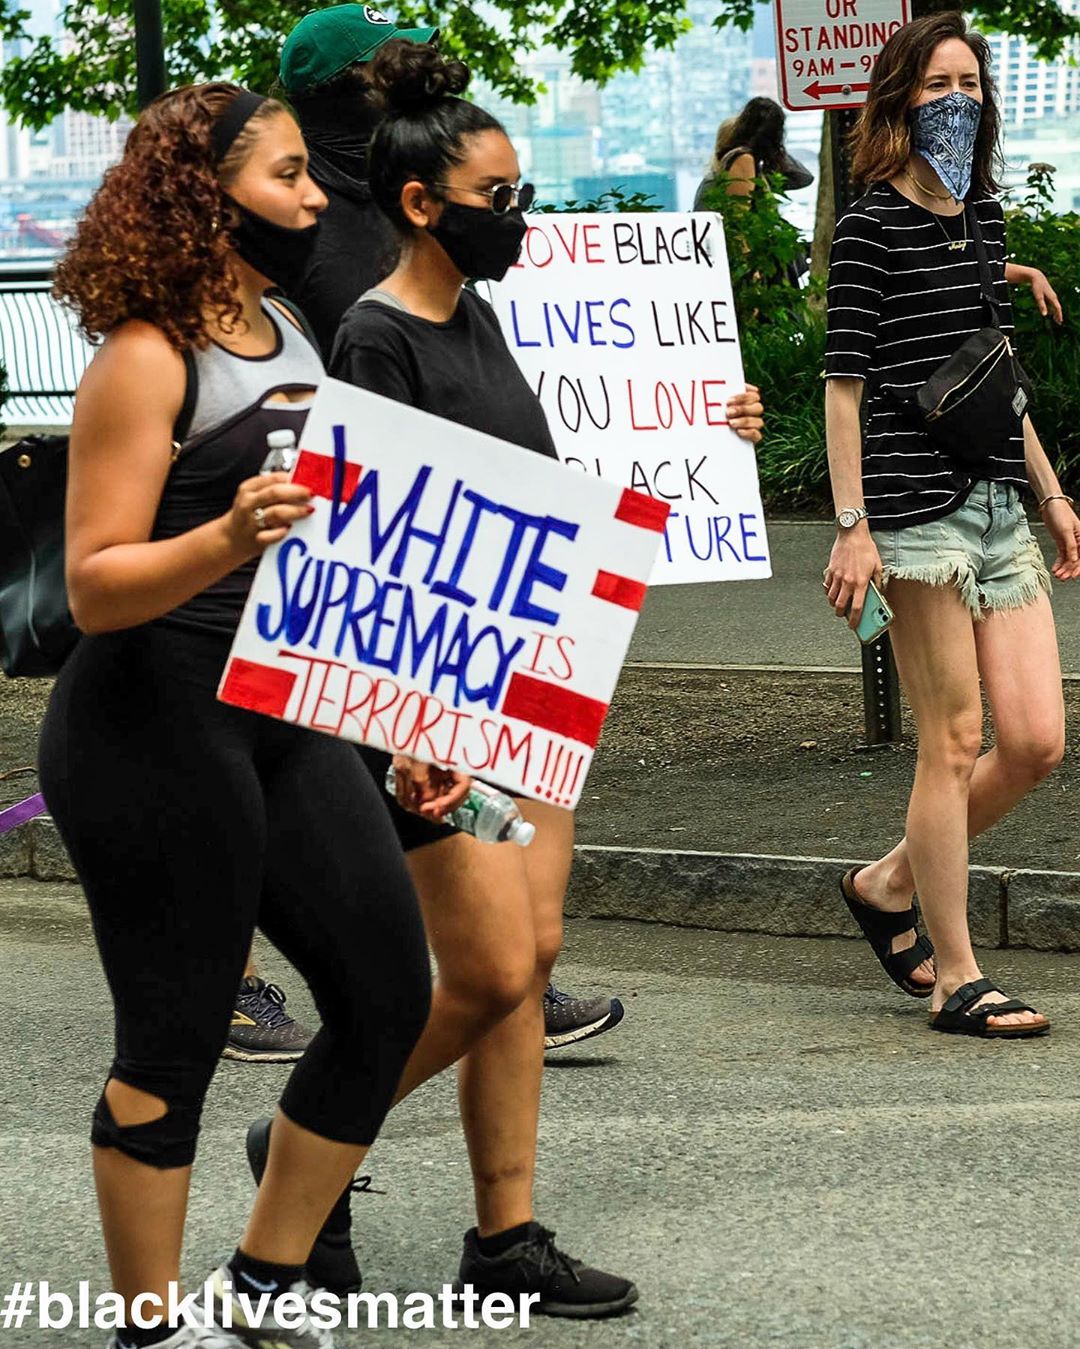 OR
STANDING
LOVE BLACK
LIVES LIKE
YOU LOVE
BLACK
TURE
WHITE
SUPREMACY IS
TERRORISM!!!!
#blacklivesmatter